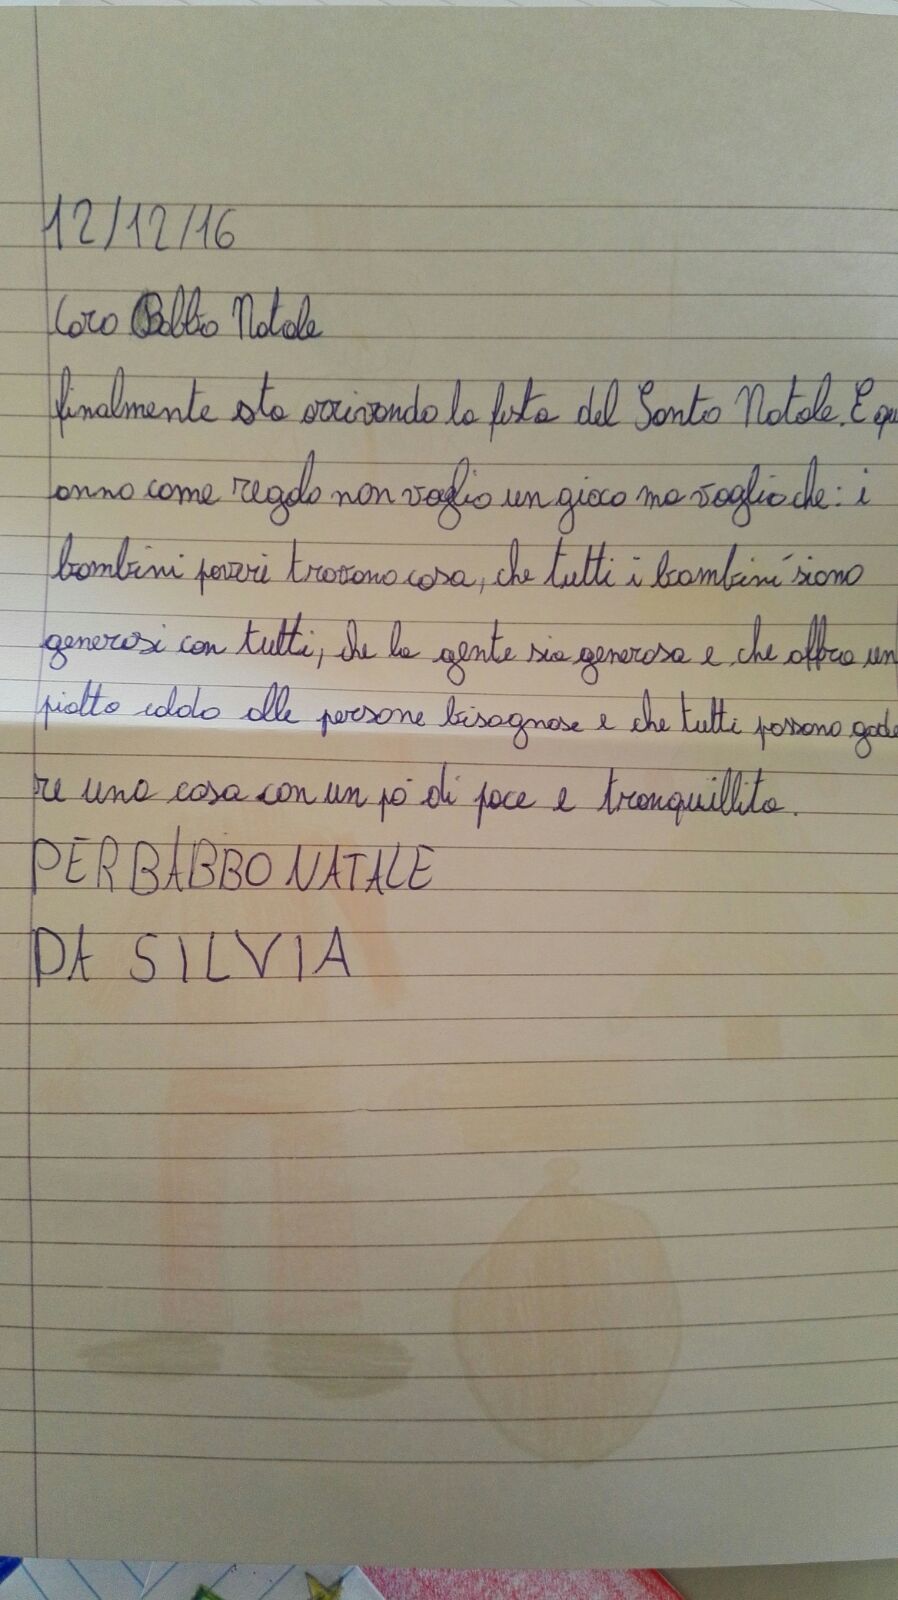 12/12/16
Caro Babbo Natale
finalmente sta arrivando la festa del Santo Natale. E qu
anno come regalo non voglio un gioco ma voglio che: i
bambini poveri trovono casa, che tutti i bambini siano
generosi con tutti, che la gente sia generosa e che offra un
piatto caldo alle persone bisognose e che tutti possono gode
re una casa con un pò di pace e tranquillita.
PER BABBO NATALE
DA SILVIA